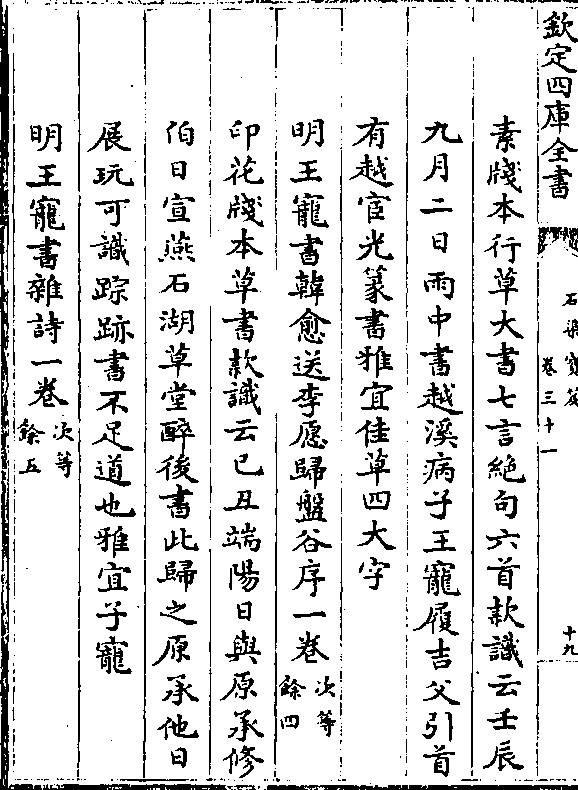 欽定四庫全書
石渠寶笈
卷三十一
十九
素牋本行草大書七言絶句六首款識云壬辰
九月二日雨中書越溪病子王寵履吉父引首
有越宧光篆書雅宜佳草四大字
明王寵書韓愈送李愿歸盤谷序一卷次等
餘四
印花牋本草書款識云己丑端陽日與原承修
伯日宣燕石湖草堂醉後書此歸之原承他日
展玩可識踪跡書不足道也雅宜子寵
明王寵書雜詩一卷次等
餘五